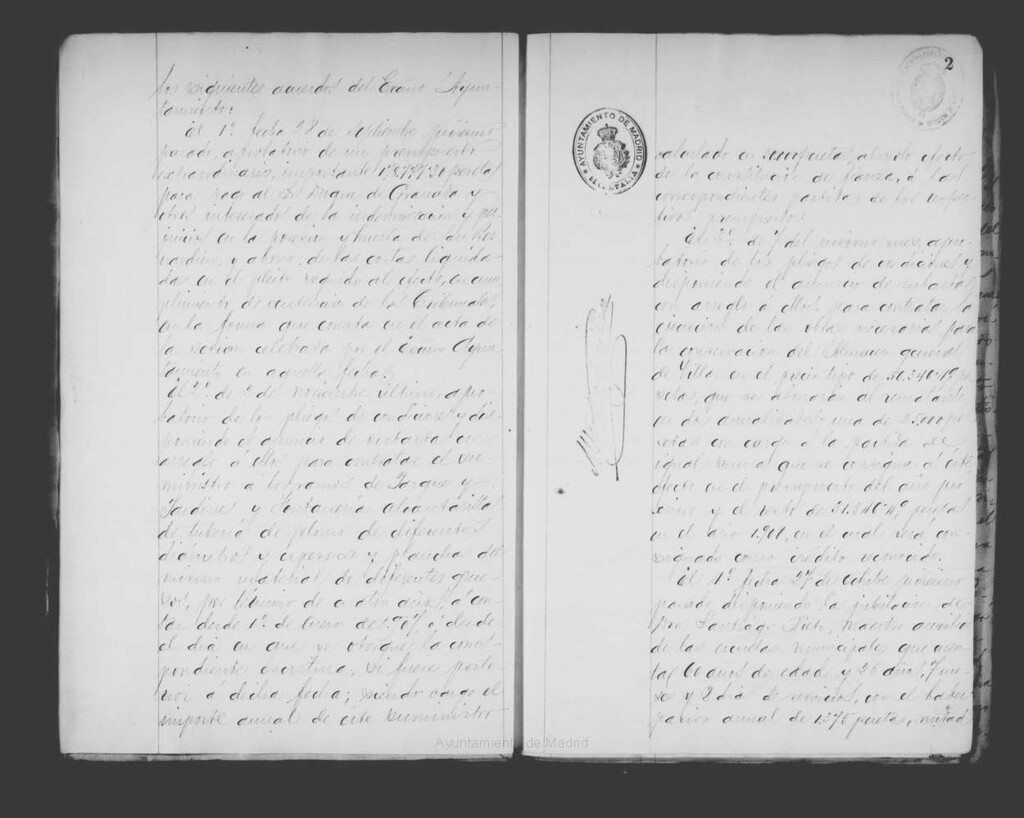 los siguientes acuerdos del Excmo Ayun-
tamiento:
El 1º fecha 28 de Septiembre próximo
pasado, aprobatorio de un presupuesto
extraordinario, importante pesetas
para pago al Sr Duque de Granada y
otros interesados de la indemnización y per-
juicios en la posesion y huerta de
y abono de las costas liquida-
das en el pleito seguido al efecto, en cum-
plimiento de sentencia de los Tribunales
en la forma que consta en el acta de
la sesion celebrada por el Excmo Ayun-
tamiento en aquella fecha.
El 2º de 2 de Noviembre último apro-
batorio de los pliegos de condiciones y dis-
poniendo el anuncio de subasta con
arreglo á ellos para contratar el su-
ministro a los ramos de Parques y
Jardines y Fontanería alcantarillas
de tubería de plomo de diferentes
diámetros y espesores y planchas del
mismo material de diferentes grue-
sos, por término de cuatro años, á con-
tar desde 1º de Enero de ó desde
el dia en que se otorgue la corres-
pondiente escritura, si fuese poste-
rior a dicha fecha; siendo cargo el
importe anual de este suministro
2
AYUNTAMIENTO DE MADRID
calculado en pesetas, al solo efecto
de la constitucion de fianza, á las
correspondientes partidas de los respec-
tivos presupuestos.
El 3º de 7 del mismo mes, apro-
batorio de los pliegos de condiciones y
disponiendo el anuncio de subasta
con arreglo á ellos, para contratar la
ejecucion de las obras necesarias para
la conservacion del Almacen general
de Villa, en el precio tipo de pe-
setas, que se abonarán al rematante
en dos anualidades: una de 25.000 pe-
setas con cargo á la partida de
igual suma que se consigna á este
efecto en el presupuesto del año pró-
ximo y el resto de 31.340'49 pesetas
en el año 1.901, en el cual será con-
signado como crédito reconocido.
El 4º fecha 27 de Octubre próximo
pasado disponiendo la jubilacion de
Don Santiago maestro auxiliar
de las escuelas municipales que cuen-
ta 60 años de edad y 25 años, 7 me-
ses y 8 dias de servicios, con el haber
pasivo anual de 1375 pesetas, mitad
Ayuntamiento de Madrid